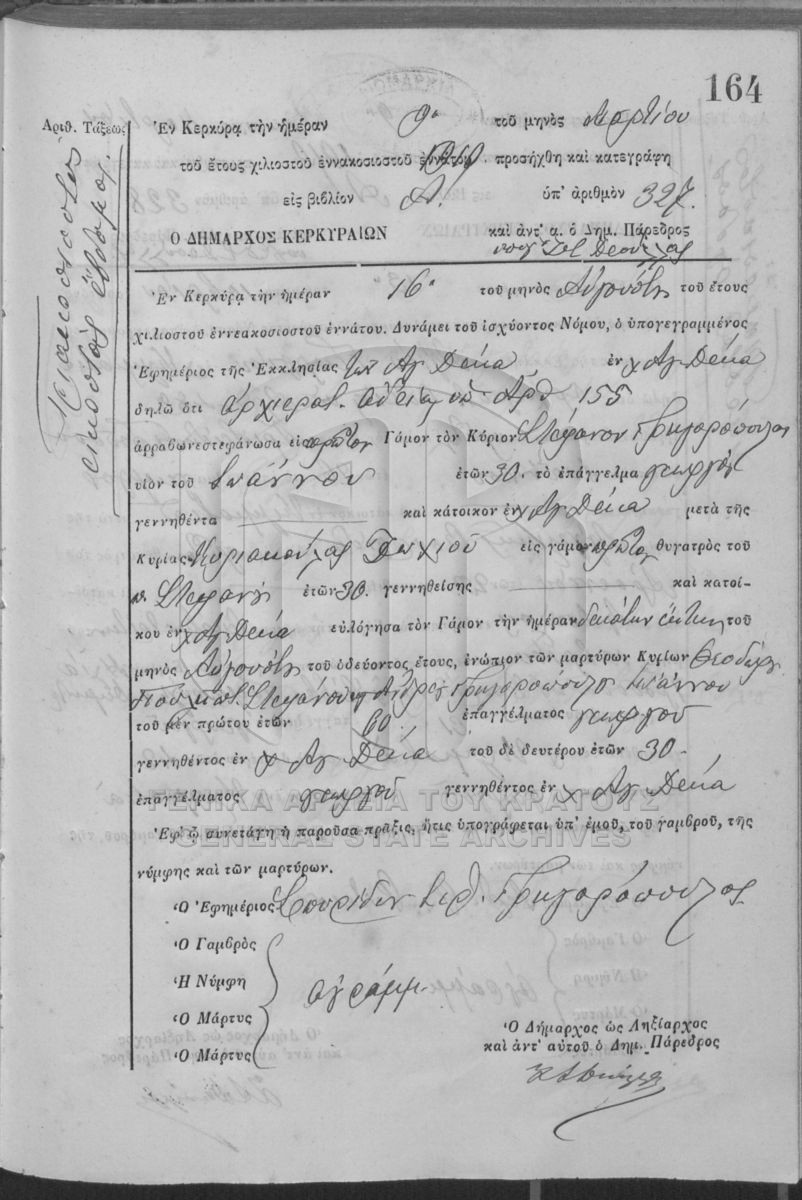 164
Αριθ. Τάξεως
τριακοσιοστὸς
εἰκοστὸς ἕβδομος.
Ἐν Κερκύρᾳ τὴν ἡμέραν 9ῃ τοῦ μηνὸς Μαρτίου
τοῦ ἔτους χιλιοστοῦ ἐννακοσιοστοῦ προσήχθη καὶ κατεγράφη
εἰς βιβλίον Α. ὑπ' ἀριθμὸν 327.
Ὁ ΔΗΜΑΡΧΟΣ ΚΕΡΚΥΡΑΙΩΝ καὶ ἀντ' α. ὁ Δημ. Πάρεδρος
Ἐν Κερκύρᾳ τὴν ἡμέραν 16ῃ τοῦ μηνὸς Αὐγούστου τοῦ ἔτους
χιλιοστοῦ ἐννεακοσιοστοῦ ἐννάτου. Δυνάμει τοῦ ἰσχύοντος Νόμου, ὁ ὑπογεγραμμένος
Ἐφημέριος τῆς Ἐκκλησίας τῶν Ἁγ Δέκα ἐν χ Ἁγ Δέκα
δηλῶ ὅτι ἀρχιερατ. ἀδείᾳ ὑπ' Ἀρθ 155
ἀρραβωνεστεφάνωσα εἰς πρῶτον Γάμον τὸν Κύριον Στέφανον Γρηγορόπουλον
υἱὸν τοῦ Ἰωάννου ἐτῶν 30. τὸ ἐπάγγελμα γεωργόν
γεννηθέντα καὶ κάτοικον ἐν χ Ἁγ Δέκα μετὰ τῆς
Κυρίας Κυριακούλας εἰς γάμον πρῶτον θυγατρὸς τοῦ
π. Στεφανῆ ἐτῶν 30. γεννηθείσης καὶ κατοί-
κου ἐν χ Ἁγ Δέκα εὐλόγησα τὸν Γάμον τὴν ἡμέραν δεκάτην ἕκτην τοῦ
μηνὸς Αὐγούστου τοῦ ὁδεύοντος ἔτους, ἐνώπιον τῶν μαρτύρων Κυρίων Θεοδώρου
ποτ. Στεφάνου καὶ Ἀνδρέου Γρηγοροπούλου Ἰωάννου
τοῦ μὲν πρώτου ἐτῶν 60. ἐπαγγέλματος γεωργοῦ
γεννηθέντος ἐν χ Ἁγ Δέκα τοῦ δὲ δευτέρου ἐτῶν 30-
ἐπαγγέλματος γεωργοῦ γεννηθέντος ἐν χ Ἁγ Δέκα
ΓΕΝΙΚΑ ΑΡΧΕΙΑ ΤΟΥ ΚΡΑΤΟΥΣ
Ἐφ' ᾧ συνετάγη ἡ παροῦσα πρᾶξις, ἥτις ὑπογράφεται ὑπ' ἐμοῦ, τοῦ γαμβροῦ, τῆς
GENERAL STATE ARCHIVES
νύμφης καὶ τῶν μαρτύρων.
Ὁ Ἐφημέριος Σπυρίδων Ἱερ. Γρηγορόπουλος
Ὁ Γαμβρὸς
Ἡ Νύμφη ἀγράμμ.
Ὁ Μάρτυς
Ὁ Μάρτυς
Ὁ Δήμαρχος ὡς Ληξίαρχος
καὶ ἀντ' αὐτοῦ ὁ Δημ. Πάρεδρος